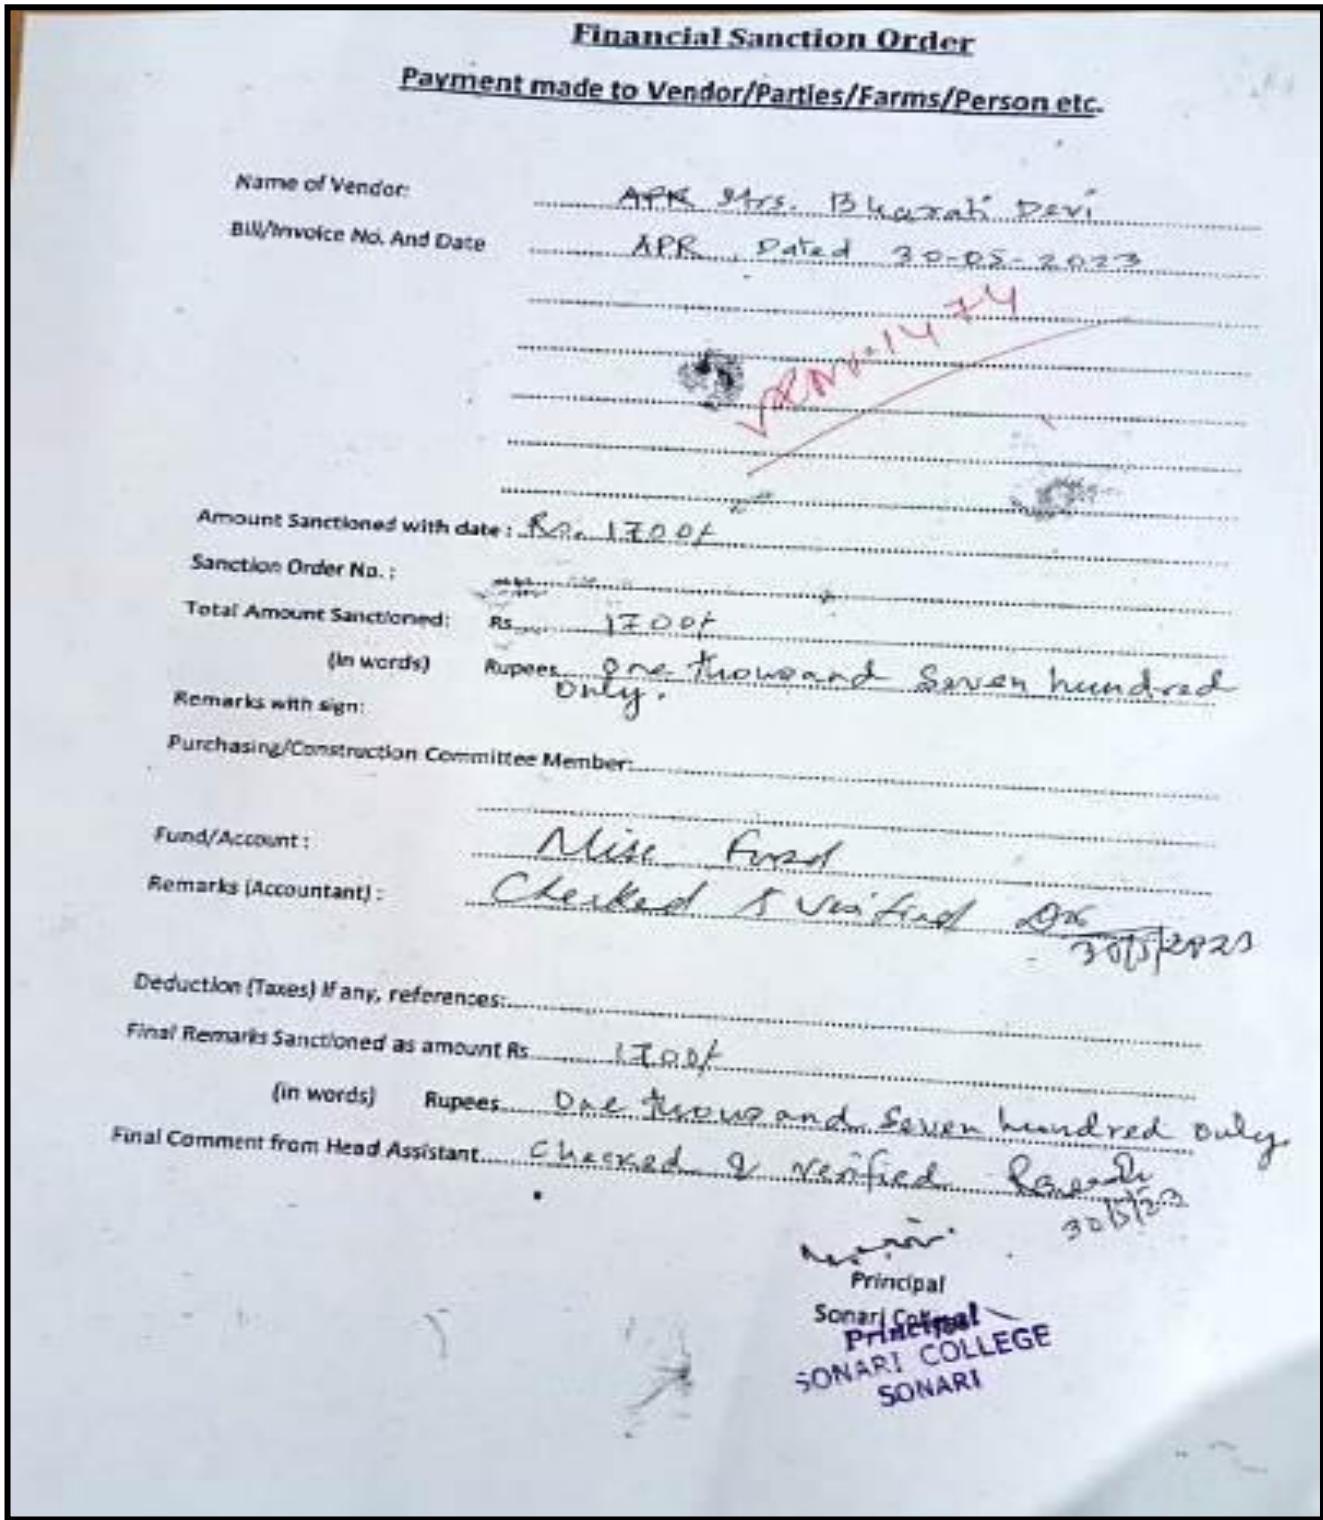 Financial Sanction Order
Payment made to Vendor/Parties/Farms/Person etc.
Name of Vendor: APR Mrs. Bharati Devi
Bill/Invoice No. And Date APR, Dated 30-05-2023
1474
Amount Sanctioned with date : Rs. 1700/-
Sanction Order No. :
Total Amount Sanctioned: Rs 1700/-
(in words) Rupees One thousand Seven hundred
only.
Remarks with sign:
Purchasing/Construction Committee Member:
Fund/Account : Misc Fund
Remarks (Accountant) : Checked & Verified
30/5/2023
Deduction (Taxes) If any, references:
Final Remarks Sanctioned as amount Rs 1700/-
(in words) Rupees One thousand Seven hundred only.
Final Comment from Head Assistant Checked & Verified
30/5/23
Principal
Sonari College
Principal
SONARI COLLEGE
SONARI